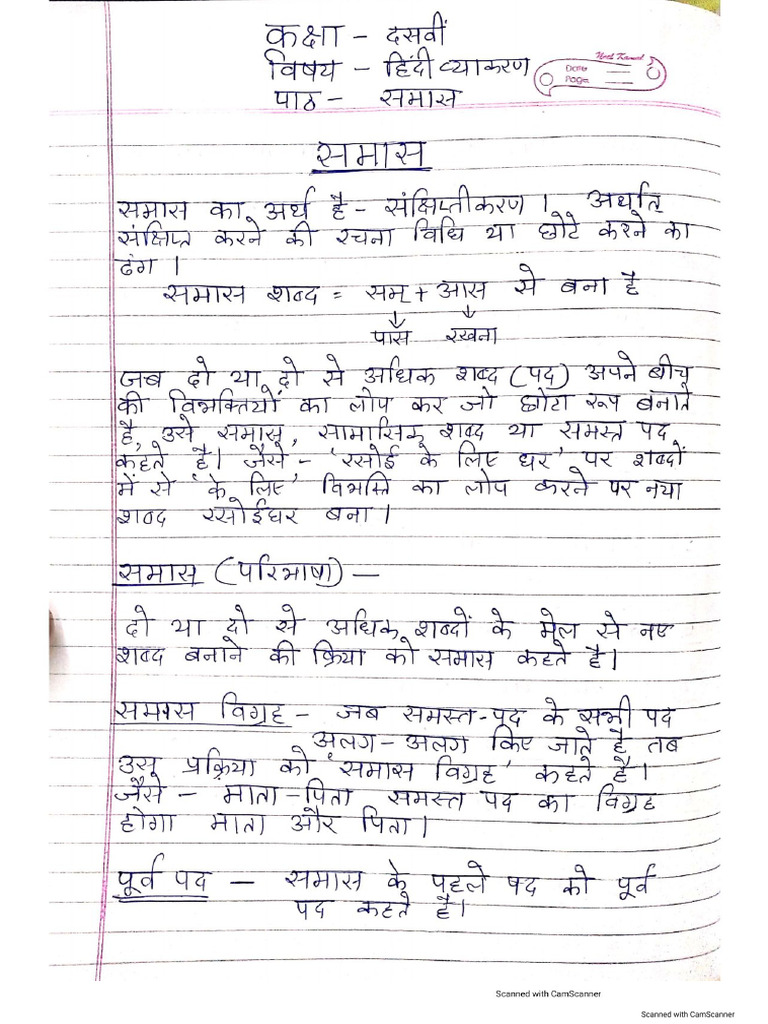 कक्षा - दसवीं
विषय - हिंदी व्याकरण
पाठ - समास
Neel Kamal
Date
Page
समास
समास का अर्थ है - संक्षिप्तीकरण । अर्थात्
संक्षिप्त करने की रचना विधि या छोटे करने का
ढंग ।
समास शब्द = सम् + आस से बना है
पास रखना
जब दो या दो से अधिक शब्द (पद) अपने बीच
की विभक्तियों का लोप कर जो छोटा रूप बनाते
है, उसे समास, सामासिक शब्द या समस्त पद
कहते है। जैसे - 'रसोई के लिए घर' पर शब्दों
में से 'के लिए' विभक्ति का लोप करने पर नया
शब्द रसोईघर बना ।
समास (परिभाषा) -
दो या दो से अधिक शब्दों के मेल से नए
शब्द बनाने की क्रिया को समास कहते है।
समास विग्रह - जब समस्त-पद के सभी पद
अलग-अलग किए जाते है तब
उस प्रक्रिया को 'समास विग्रह' कहते है।
जैसे - माता-पिता समस्त पद का विग्रह
होगा माता और पिता ।
पूर्व पद - समास के पहले पद को पूर्व
पद कहते है।
Scanned with CamScanner
Scanned with CamScanner